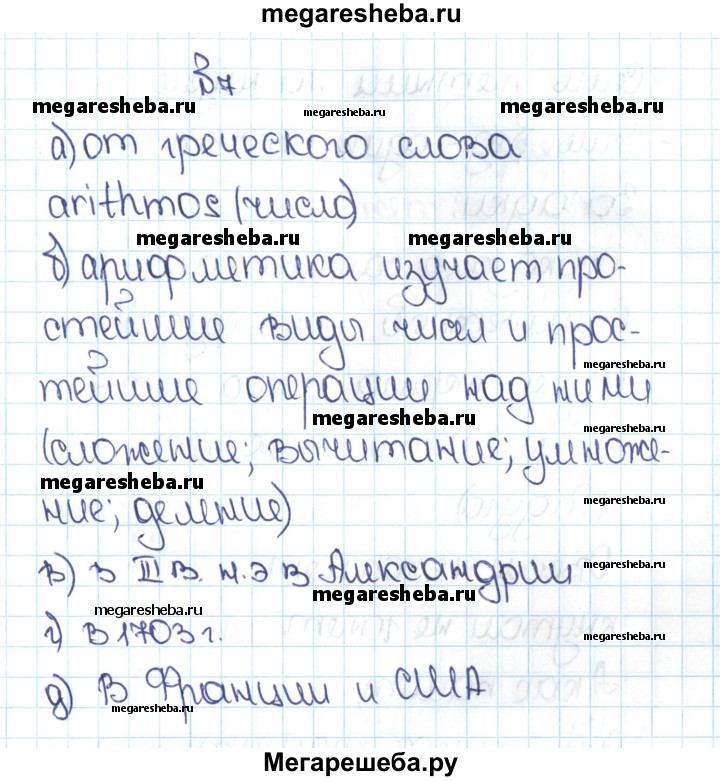 megaresheba.ru
В7
megaresheba.ru megaresheba.ru megaresheba.ru
а) от греческого слова
arithmos (число)
megaresheba.ru megaresheba.ru
б) арифметика изучает про-
стейшие виды чисел и прос-
megaresheba.ru
тейшие операции над ними
megaresheba.ru
(сложение; вычитание; умноже-
megaresheba.ru
ние; деление)
megaresheba.ru
в) в III в. н.э в Александрии
megaresheba.ru
megaresheba.ru
megaresheba.ru
г) В 1703 г.
д) В Франции и США
megaresheba.ru megaresheba.ru
Мегарешеба.ру